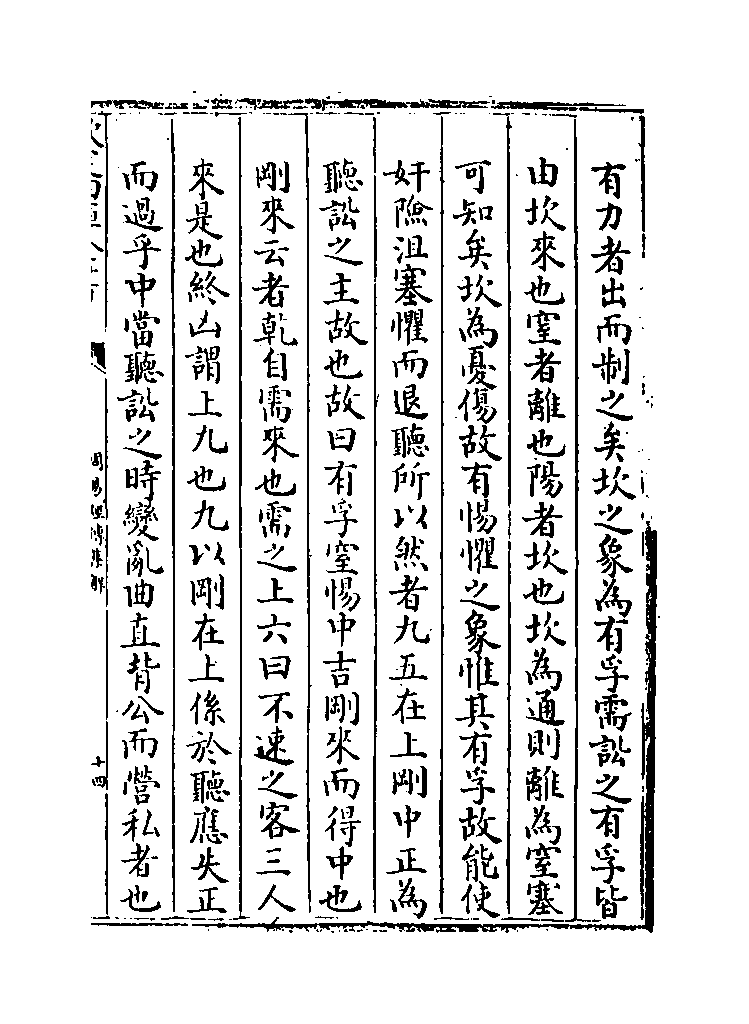 有力者出而制之矣坎之象為有孚需訟之有孚皆
由坎來也窒者離也陽者坎也坎為通則離為窒塞
可知矣坎為憂傷故有惕懼之象惟其有孚故能使
奸險沮塞懼而退聽所以然者九五在上剛中正為
聽訟之主故也故曰有孚窒惕中吉剛來而得中也
剛來云者乾自需來也需之上六曰不速之客三人
來是也終凶謂上九也九以剛在上係於聽應失正
而過乎中當聽訟之時變亂曲直背公而營私者也
周易經傳集解
十四